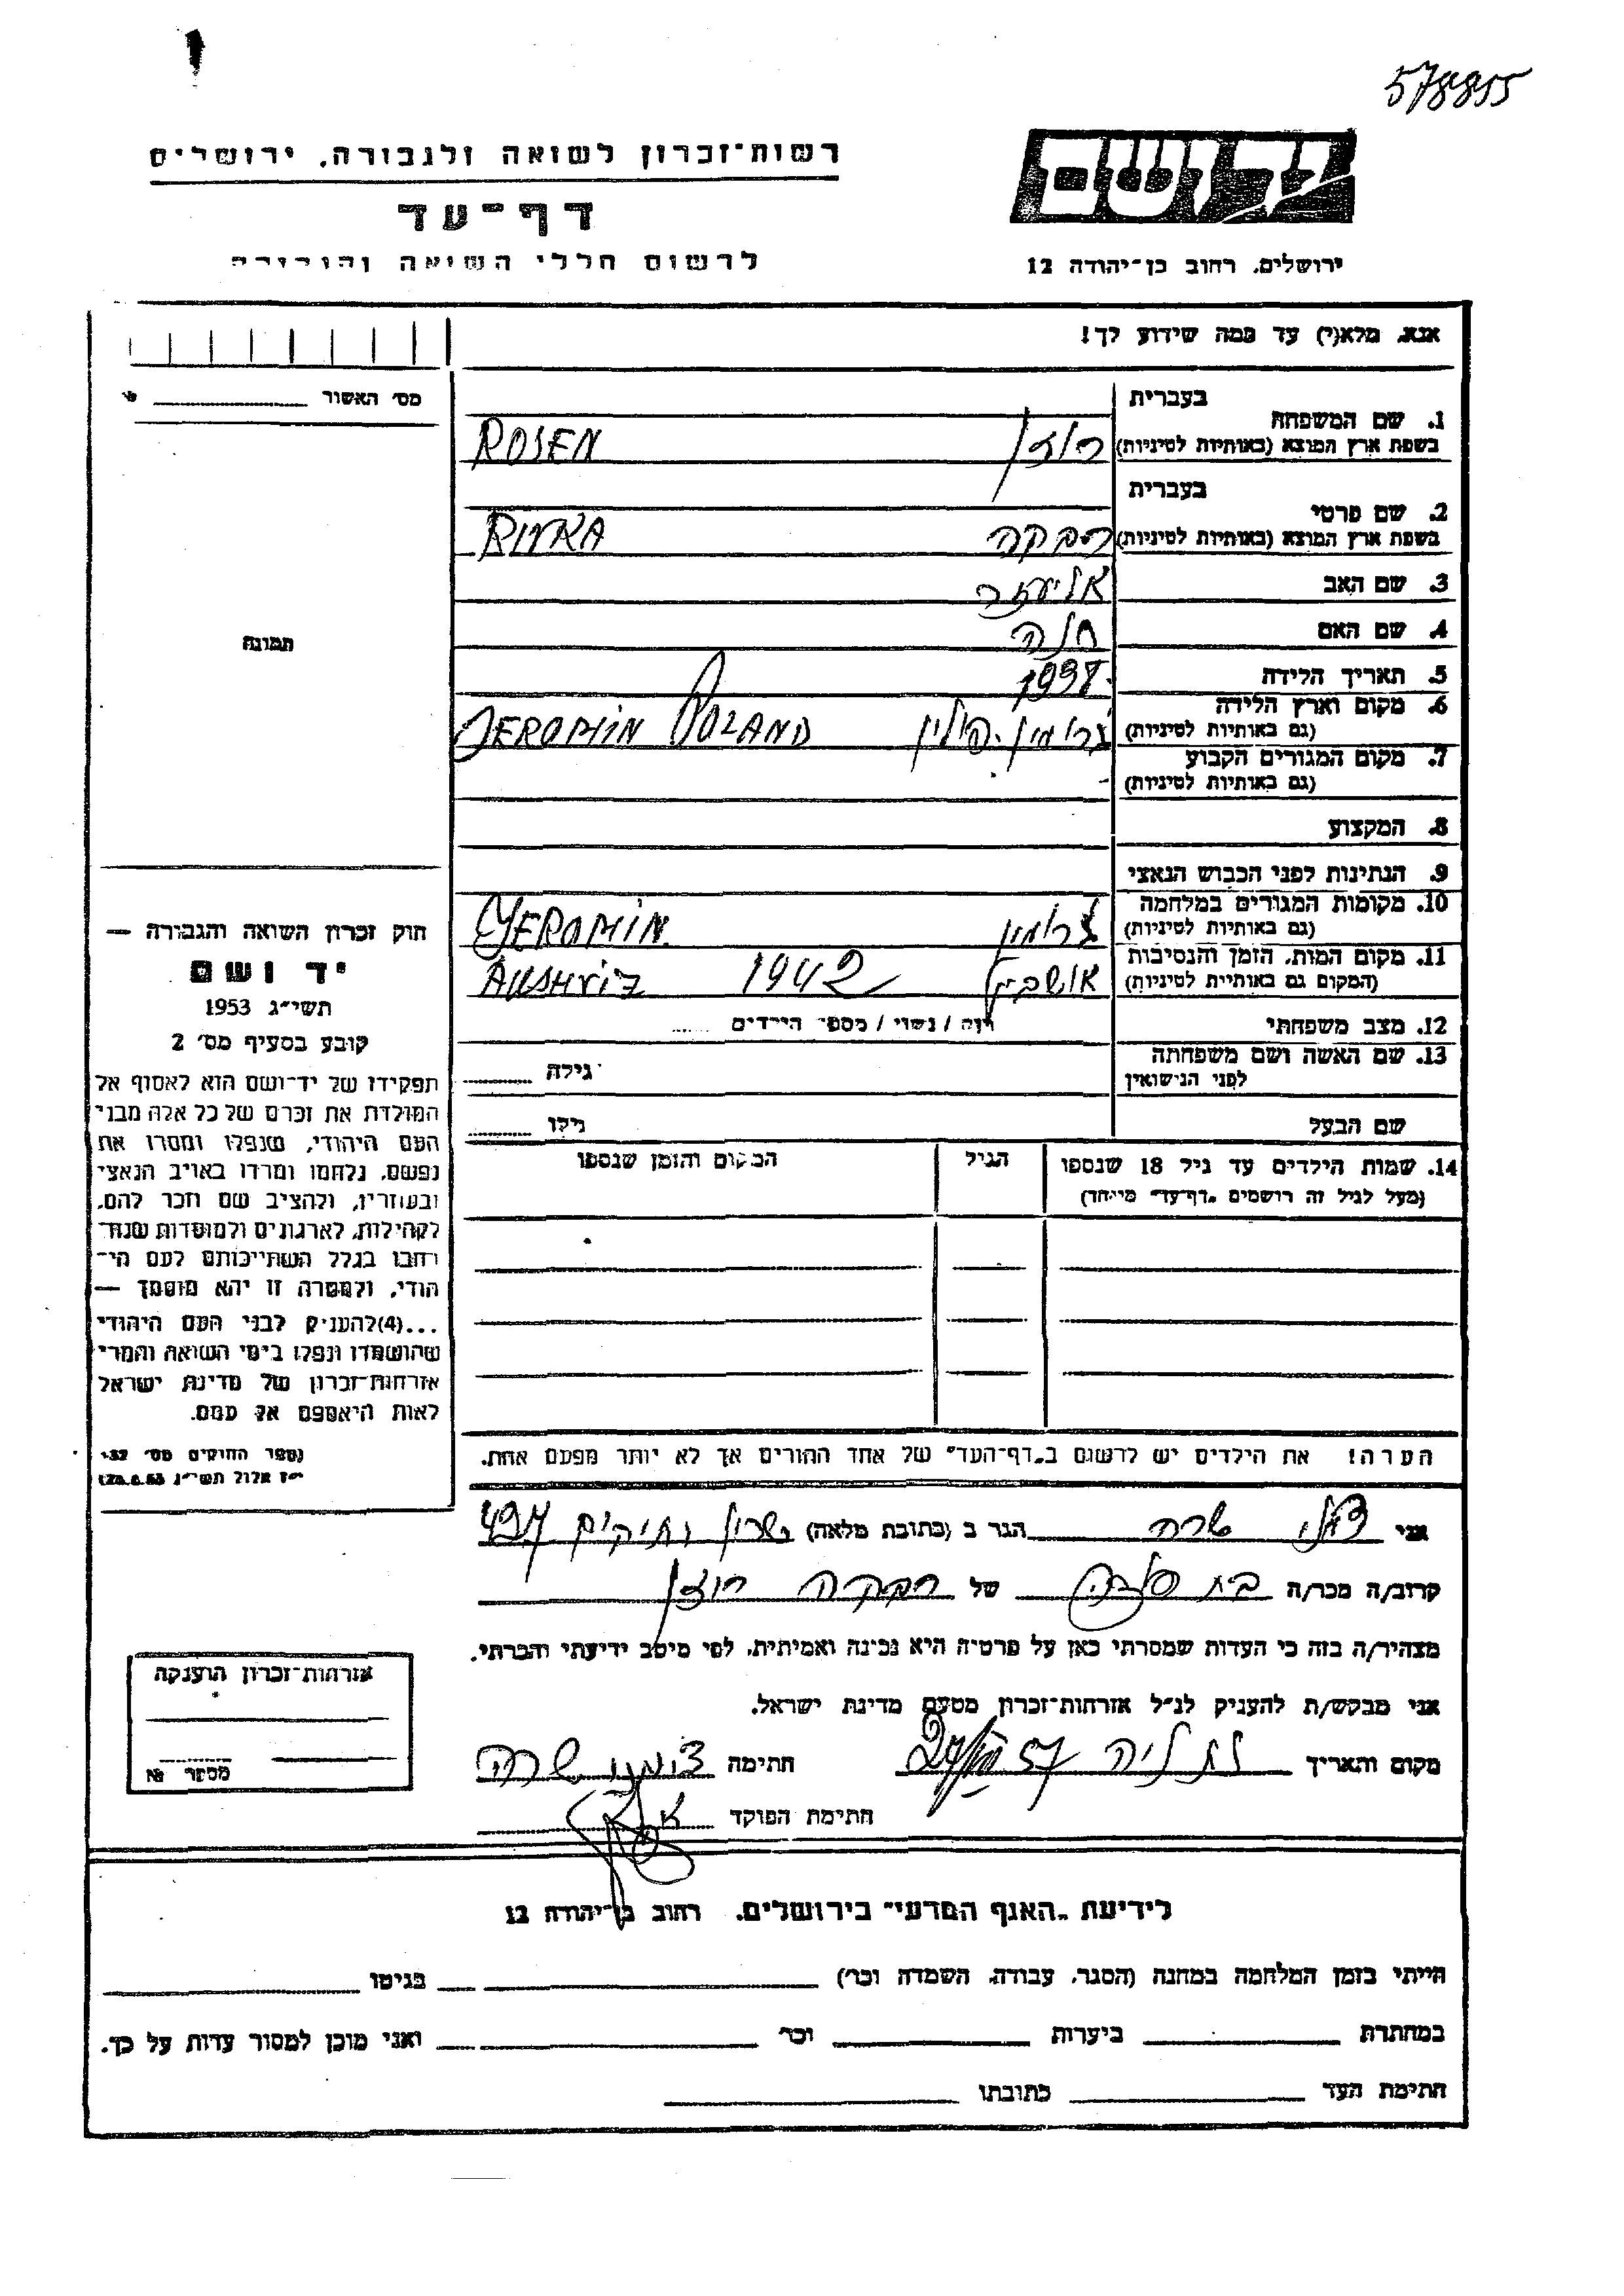 578855
רשות־זכרון לשואה ולגבורה, ירושלים
יד ושם
דף־עד
לרשום חללי השואה והגבורה
ירושלים, רחוב בן־יהודה 12
אנא, מלא(י) עד כמה שידוע לך!
מס׳ האשור
בעברית
1. שם המשפחה
בשפת ארץ המוצא (באותיות לטיניות) רוזן ROSEN
בעברית
2. שם פרטי
בשפת ארץ המוצא (באותיות לטיניות) רבקה RIVKA
3. שם האב אליעזר
4. שם האם חנה
5. תאריך הלידה
6. מקום וארץ הלידה
(גם באותיות לטיניות) פולין POLAND
7. מקום המגורים הקבוע
(גם באותיות לטיניות)
8. המקצוע
9. הנתינות לפני הכבוש הנאצי
10. מקומות המגורים במלחמה
(גם באותיות לטיניות)
11. מקום המות, הזמן והנסיבות
(המקום גם באותיות לטיניות) 1942
12. מצב משפחתי רווק / נשוי / מספר הילדים
13. שם האשה ושם משפחתה
לפני הנישואין גילה
שם הבעל גילו
14. שמות הילדים עד גיל 18 שנספו הגיל המקום והזמן שנספו
(מעל לגיל זה רושמים „דף־עד" מיוחד)
הערה! את הילדים יש לרשום ב„דף־העד" של אחד ההורים אך לא יותר מפעם אחת.
תמונה
חוק זכרון השואה והגבורה —
יד ושם
תשי״ג 1953
קובע בסעיף מס׳ 2
תפקידו של יד־ושם הוא לאסוף אל
המולדת את זכרם של כל אלה מבני
העם היהודי, שנפלו ומסרו את
נפשם, נלחמו ומרדו באויב הנאצי
ובעוזריו, ולהציב שם וזכר להם,
לקהילות, לארגונים ולמוסדות שנח־
רבו בגלל השתייכותם לעם הי־
הודי, ולמטרה זו יהא מוסמך —
...(4)להעניק לבני העם היהודי
שהושמדו ונפלו בימי השואה והמרי
אזרחות־זכרון של מדינת ישראל
לאות היאספם אל עמם.
(ספר החוקים מס׳ 132
י״ז אלול תשי״ג 28.8.53)
אני שרה הגר ב (כתובת מלאה)
קרוב/ה מכר/ה בת דודה של רבקה רוזן
מצהיר/ה בזה כי העדות שמסרתי כאן על פרטיה היא נכונה ואמיתית, לפי מיטב ידיעתי והכרתי.
אני מבקש/ת להעניק לנ״ל אזרחות־זכרון מטעם מדינת ישראל.
מקום ותאריך נתניה חתימה שרה
חתימת הפוקד
אזרחות־זכרון הוענקה
מספר №
לידיעת „האגף המדעי" בירושלים, רחוב בן־יהודה 12
הייתי בזמן המלחמה במחנה (הסגר, עבודה, השמדה וכר׳) בגיטו
במחתרת ביערות וכר׳ ואני מוכן למסור עדות על כך.
חתימת העד כתובתו